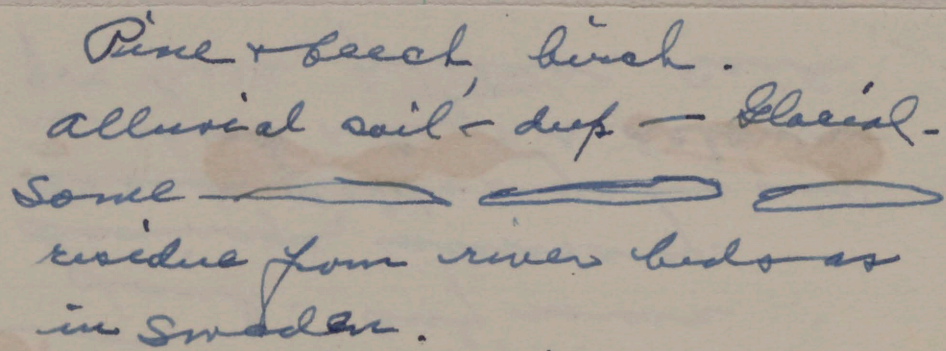 Pine + beech, birch.
alluvial soil - deep - Glacial -
Some
residue from river beds as
in Sweden.